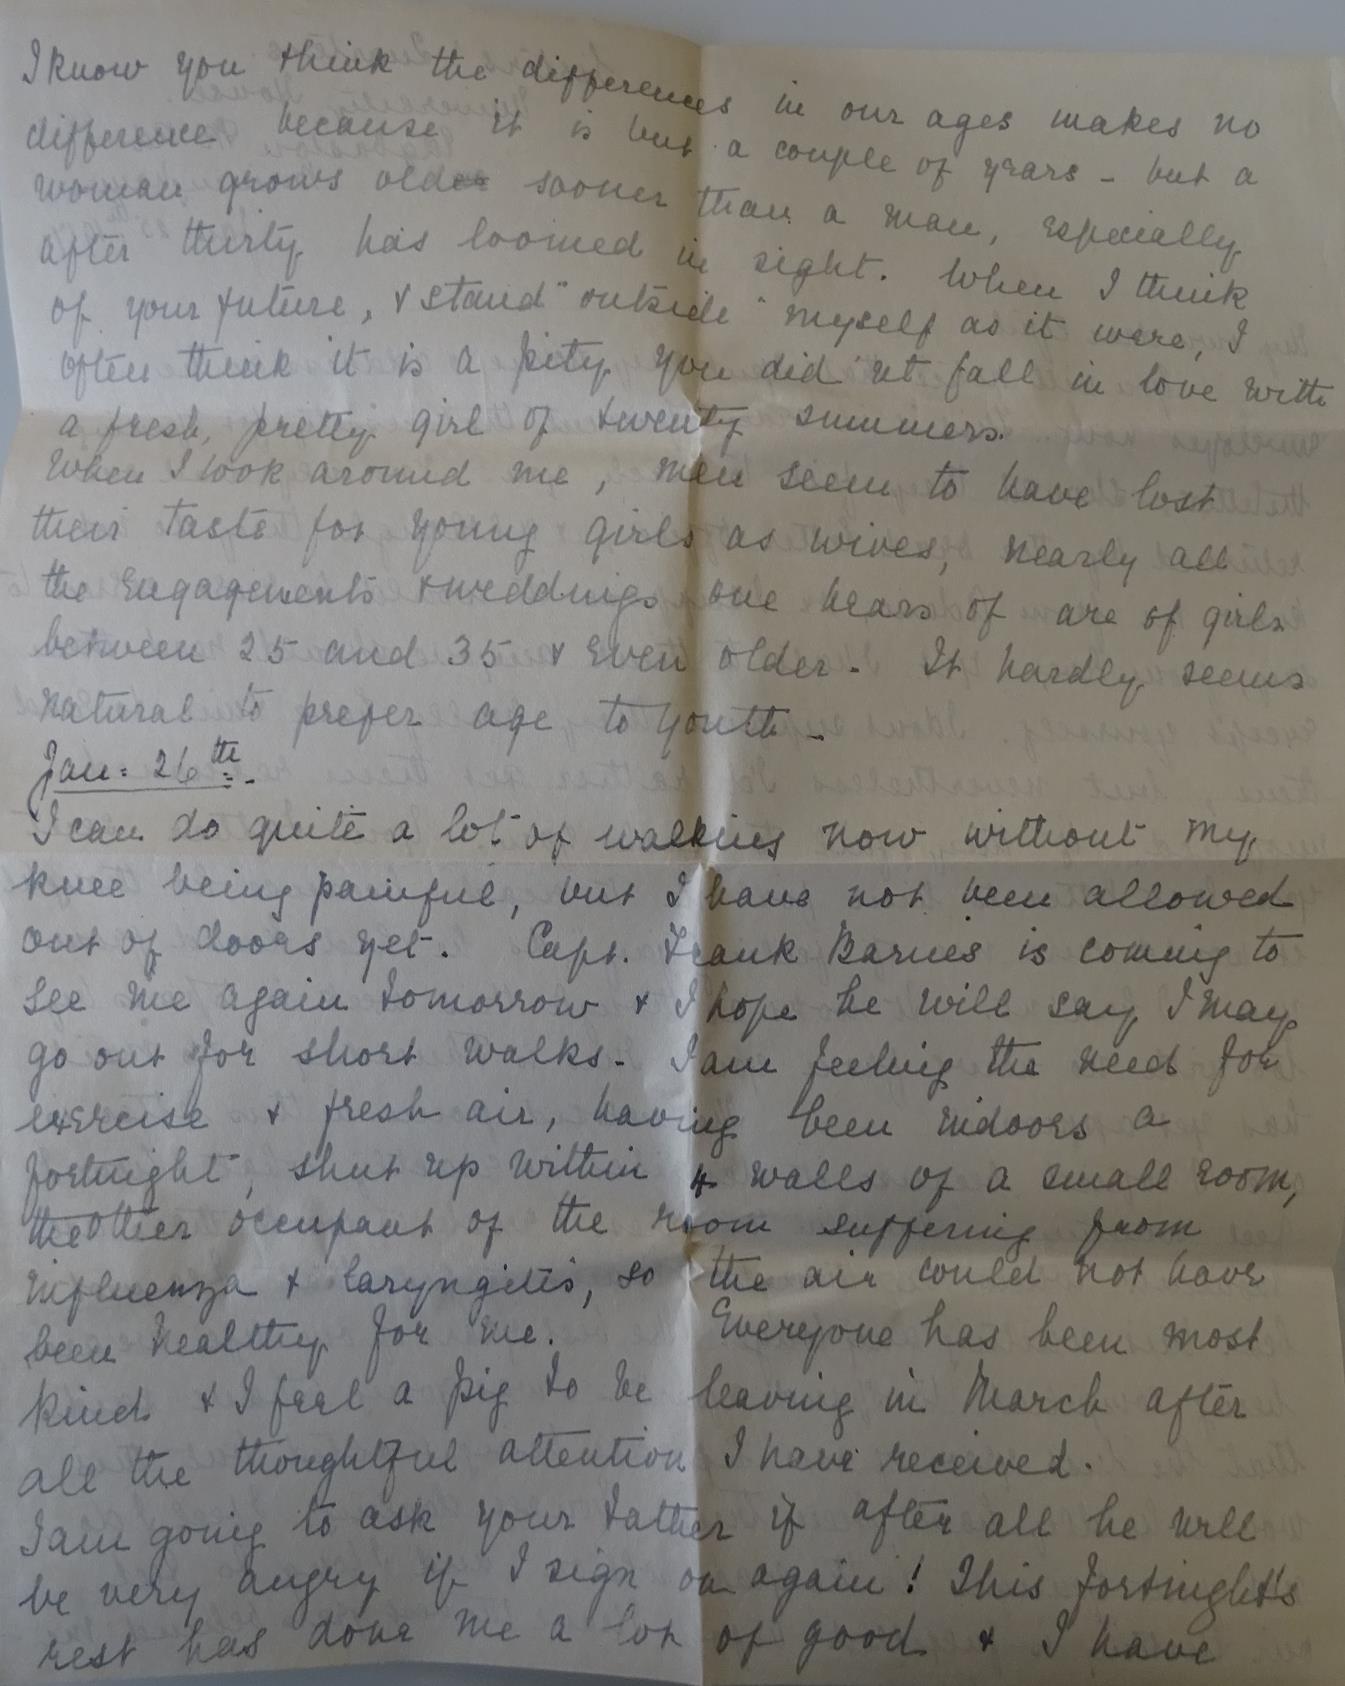 I know you think the differences in our ages makes no
difference because it is but a couple of years - but a
woman grows older sooner than a man, especially
after thirty has loomed in sight. When I think
of your future, & stand "outside" myself as it were, I
often think it is a pity you did n't fall in love with
a fresh, pretty girl of twenty summers.
When I look around me, men seem to have lost
their taste for young girls as wives, nearly all
the engagements & weddings one hears of are of girls
between 25 and 35 & even older. It hardly seems
natural to prefer age to youth -
Jan: 26th -
I can do quite a lot of walking now without my
knee being painful, but I have not been allowed
out of doors yet. Capt. Frank Barnes is coming to
see me again tomorrow & I hope he will say I may
go out for short walks - I am feeling the need for
exercise & fresh air, having been indoors a
fortnight, shut up within 4 walls of a small room,
the other occupant of the room suffering from
influenza & laryngitis, so the air could not have
been healthy for me. Everyone has been most
kind & I feel a pig to be leaving in March after
all the thoughtful attention I have received.
I am going to ask your Father if after all he will
be very angry if I sign on again! This fortnight's
rest has done me a lot of good & I have